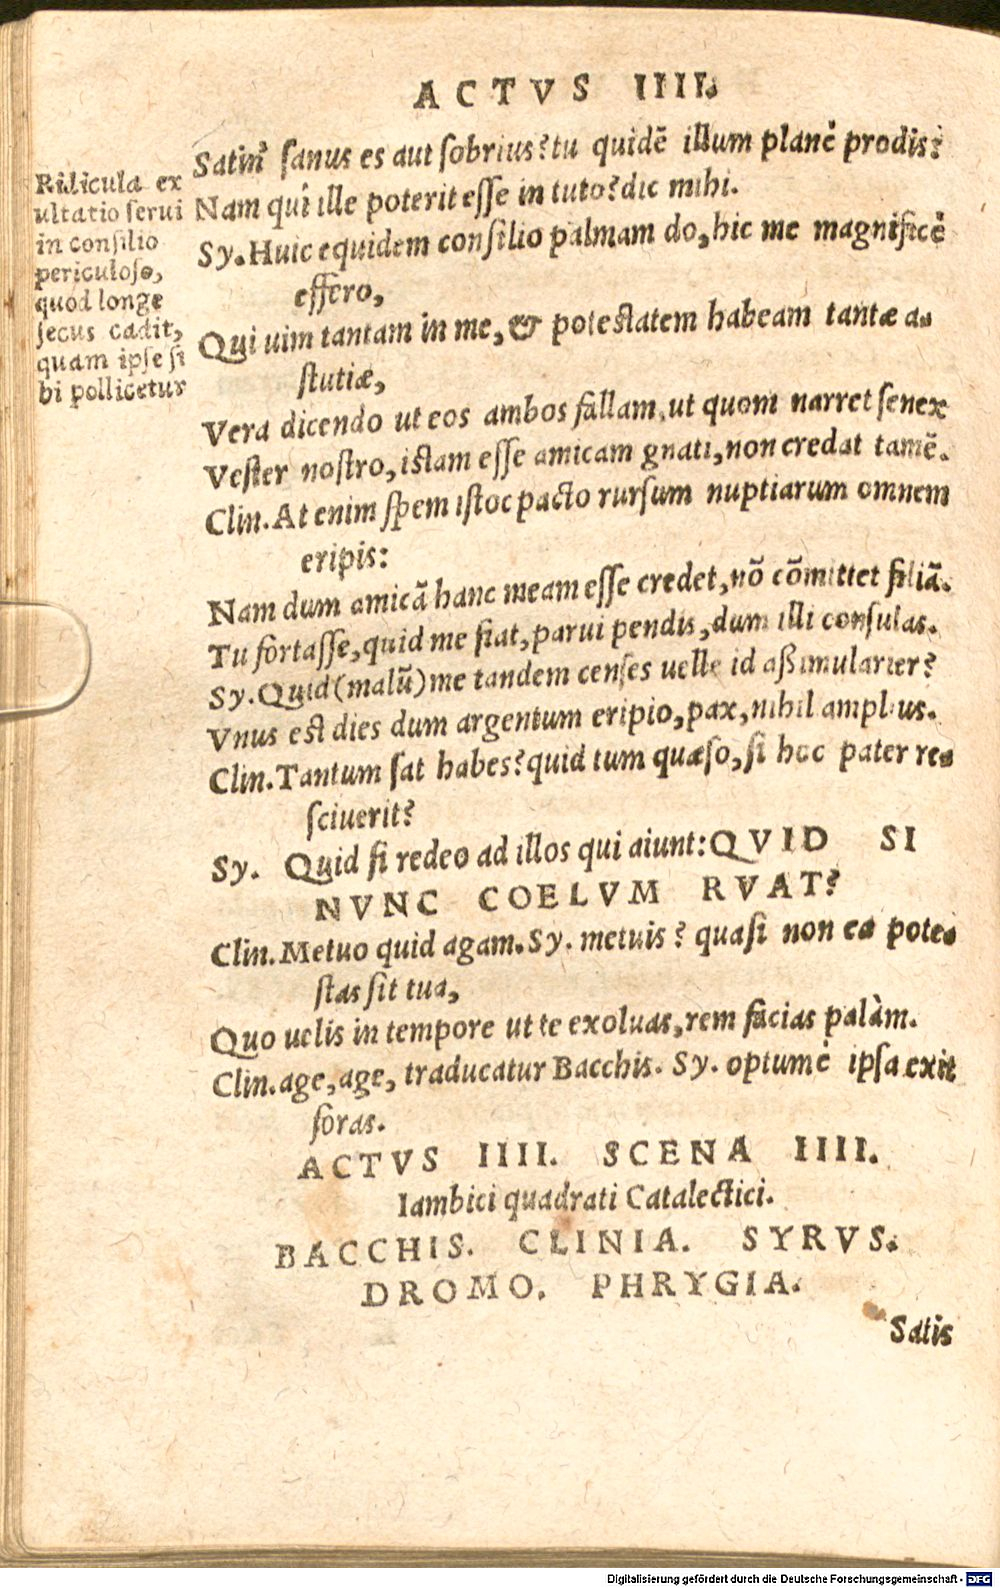 ACTVS IIII.
Satin' sanus es aut sobrius? tu quidē illum planè prodis?
Nam quî ille poterit esse in tuto? dic mihi.
Sy. Huic equidem consilio palmam do, hic me magnificè
effero,
Qui uim tantam in me, & potestatem habeam tantæ a-
stutiæ,
Vera dicendo ut eos ambos fallam, ut quom narret senex
Vester nostro, istam esse amicam gnati, non credat tamē.
Clin. At enim spem istoc pacto rursum nuptiarum omnem
eripis:
Nam dum amicā hanc meam esse credet, nō cōmittet filiā.
Tu fortasse, quid me fiat, parui pendis, dum illi consulas.
Sy. Quid (malū) me tandem censes uelle id aßimularier?
Vnus est dies dum argentum eripio, pax, nihil amplius.
Clin. Tantum sat habes? quid tum quæso, si hoc pater re-
sciuerit?
Sy. Quid si redeo ad illos qui aiunt: QVID SI
NVNC COELVM RVAT?
Clin. Metuo quid agam. Sy. metuis? quasi non ea pote-
stas sit tua,
Quo uelis in tempore ut te exoluas, rem facias palàm.
Clin. age, age, traducatur Bacchis. Sy. optumè ipsa exit
foras.
Ridicula ex
ultatio serui
in consilio
periculoso,
quod longe
secus cadit,
quam ipse si
bi pollicetur
ACTVS IIII. SCENA IIII.
Iambici quadrati Catalectici.
BACCHIS. CLINIA. SYRVS.
DROMO. PHRYGIA.
Satis
Digitalisierung gefördert durch die Deutsche Forschungsgemeinschaft - DFG